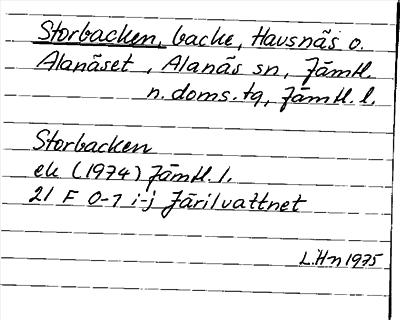 Storbacken, backe, Havsnäs o.
Alanäset, Alanäs sn, Jämtl.
n. doms. tg, Jämtl. l.
Storbacken
ek (1974) Jämtl. l.
21 F 0-1 i-j Järilvattnet
L.Hn 1975